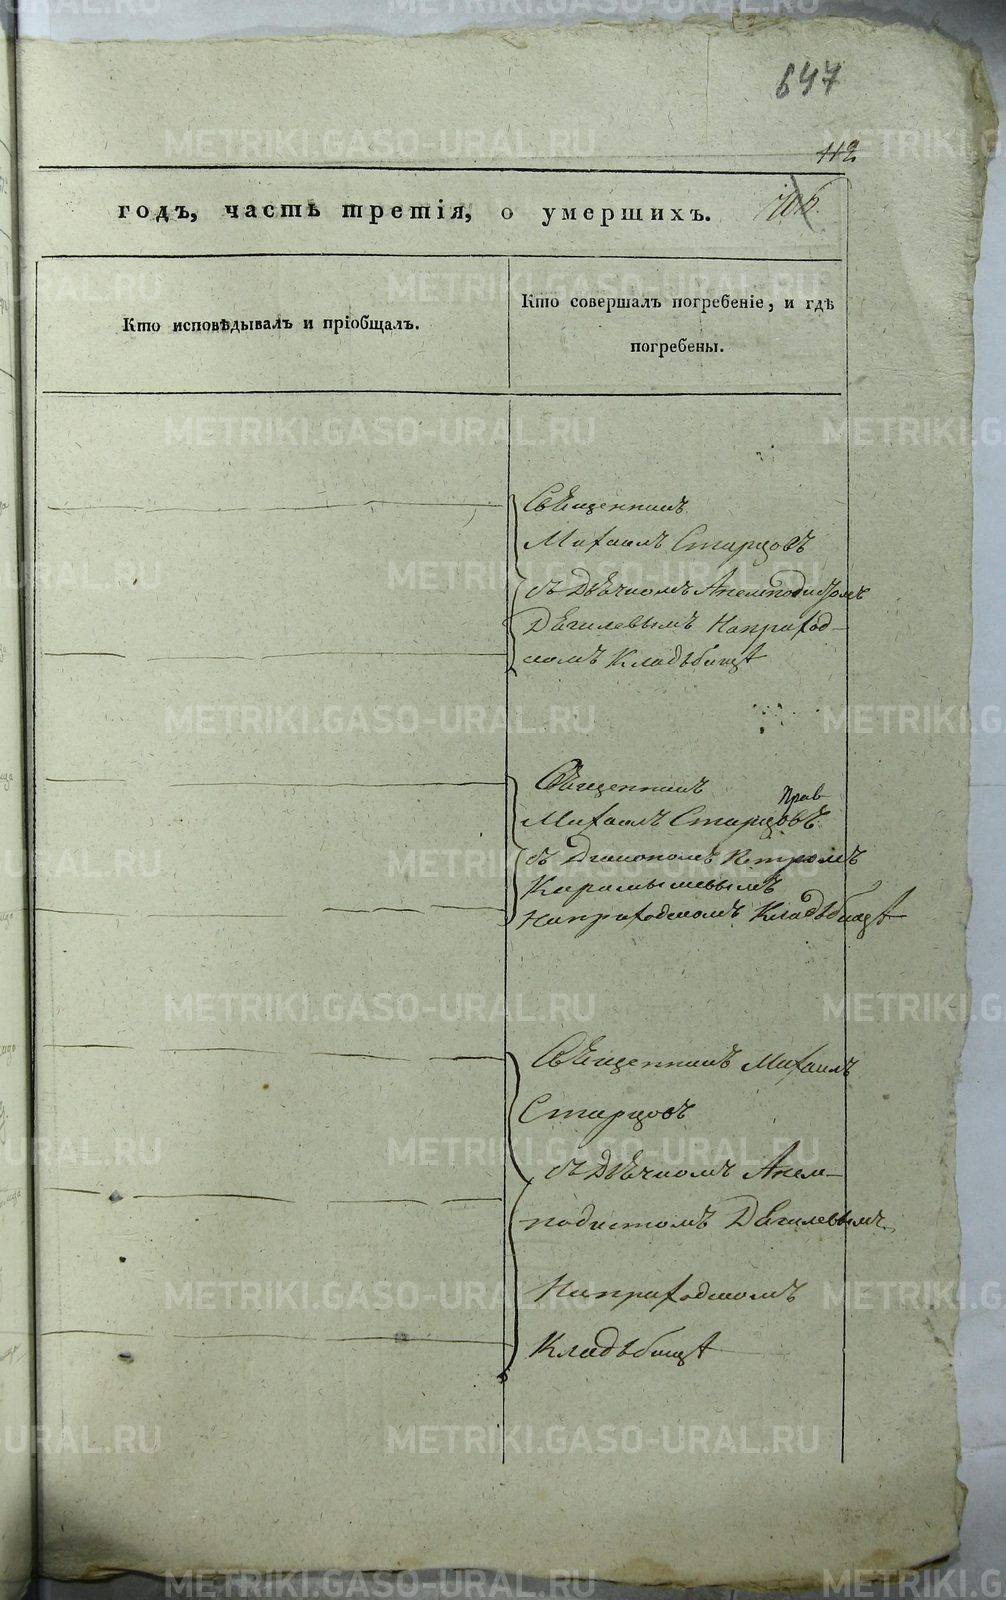 647
112
годъ, часть третія, о умершихъ.
Кто исповѣдывалъ и пріобщалъ.
Кто совершалъ погребеніе, и гдѣ
погребены.
Свѣщенникъ
Михаилъ Старцовъ
съ Дѣячкомъ Анемподистомъ
Дѣгилевымъ На приход-
комъ Кладъбищѣ
Свѣщенникъ
Михаилъ Старцовъ
съ Диакономъ Петромъ
Карамышевымъ
На приходскомъ Кладъбищѣ
Свѣщенникъ Михаилъ
Старцовъ
съ Дѣячкомъ Анем-
подистомъ Дѣгилевымъ
На приходскомъ
Кладъбищѣ
METRIKI.GASO-URAL.RU